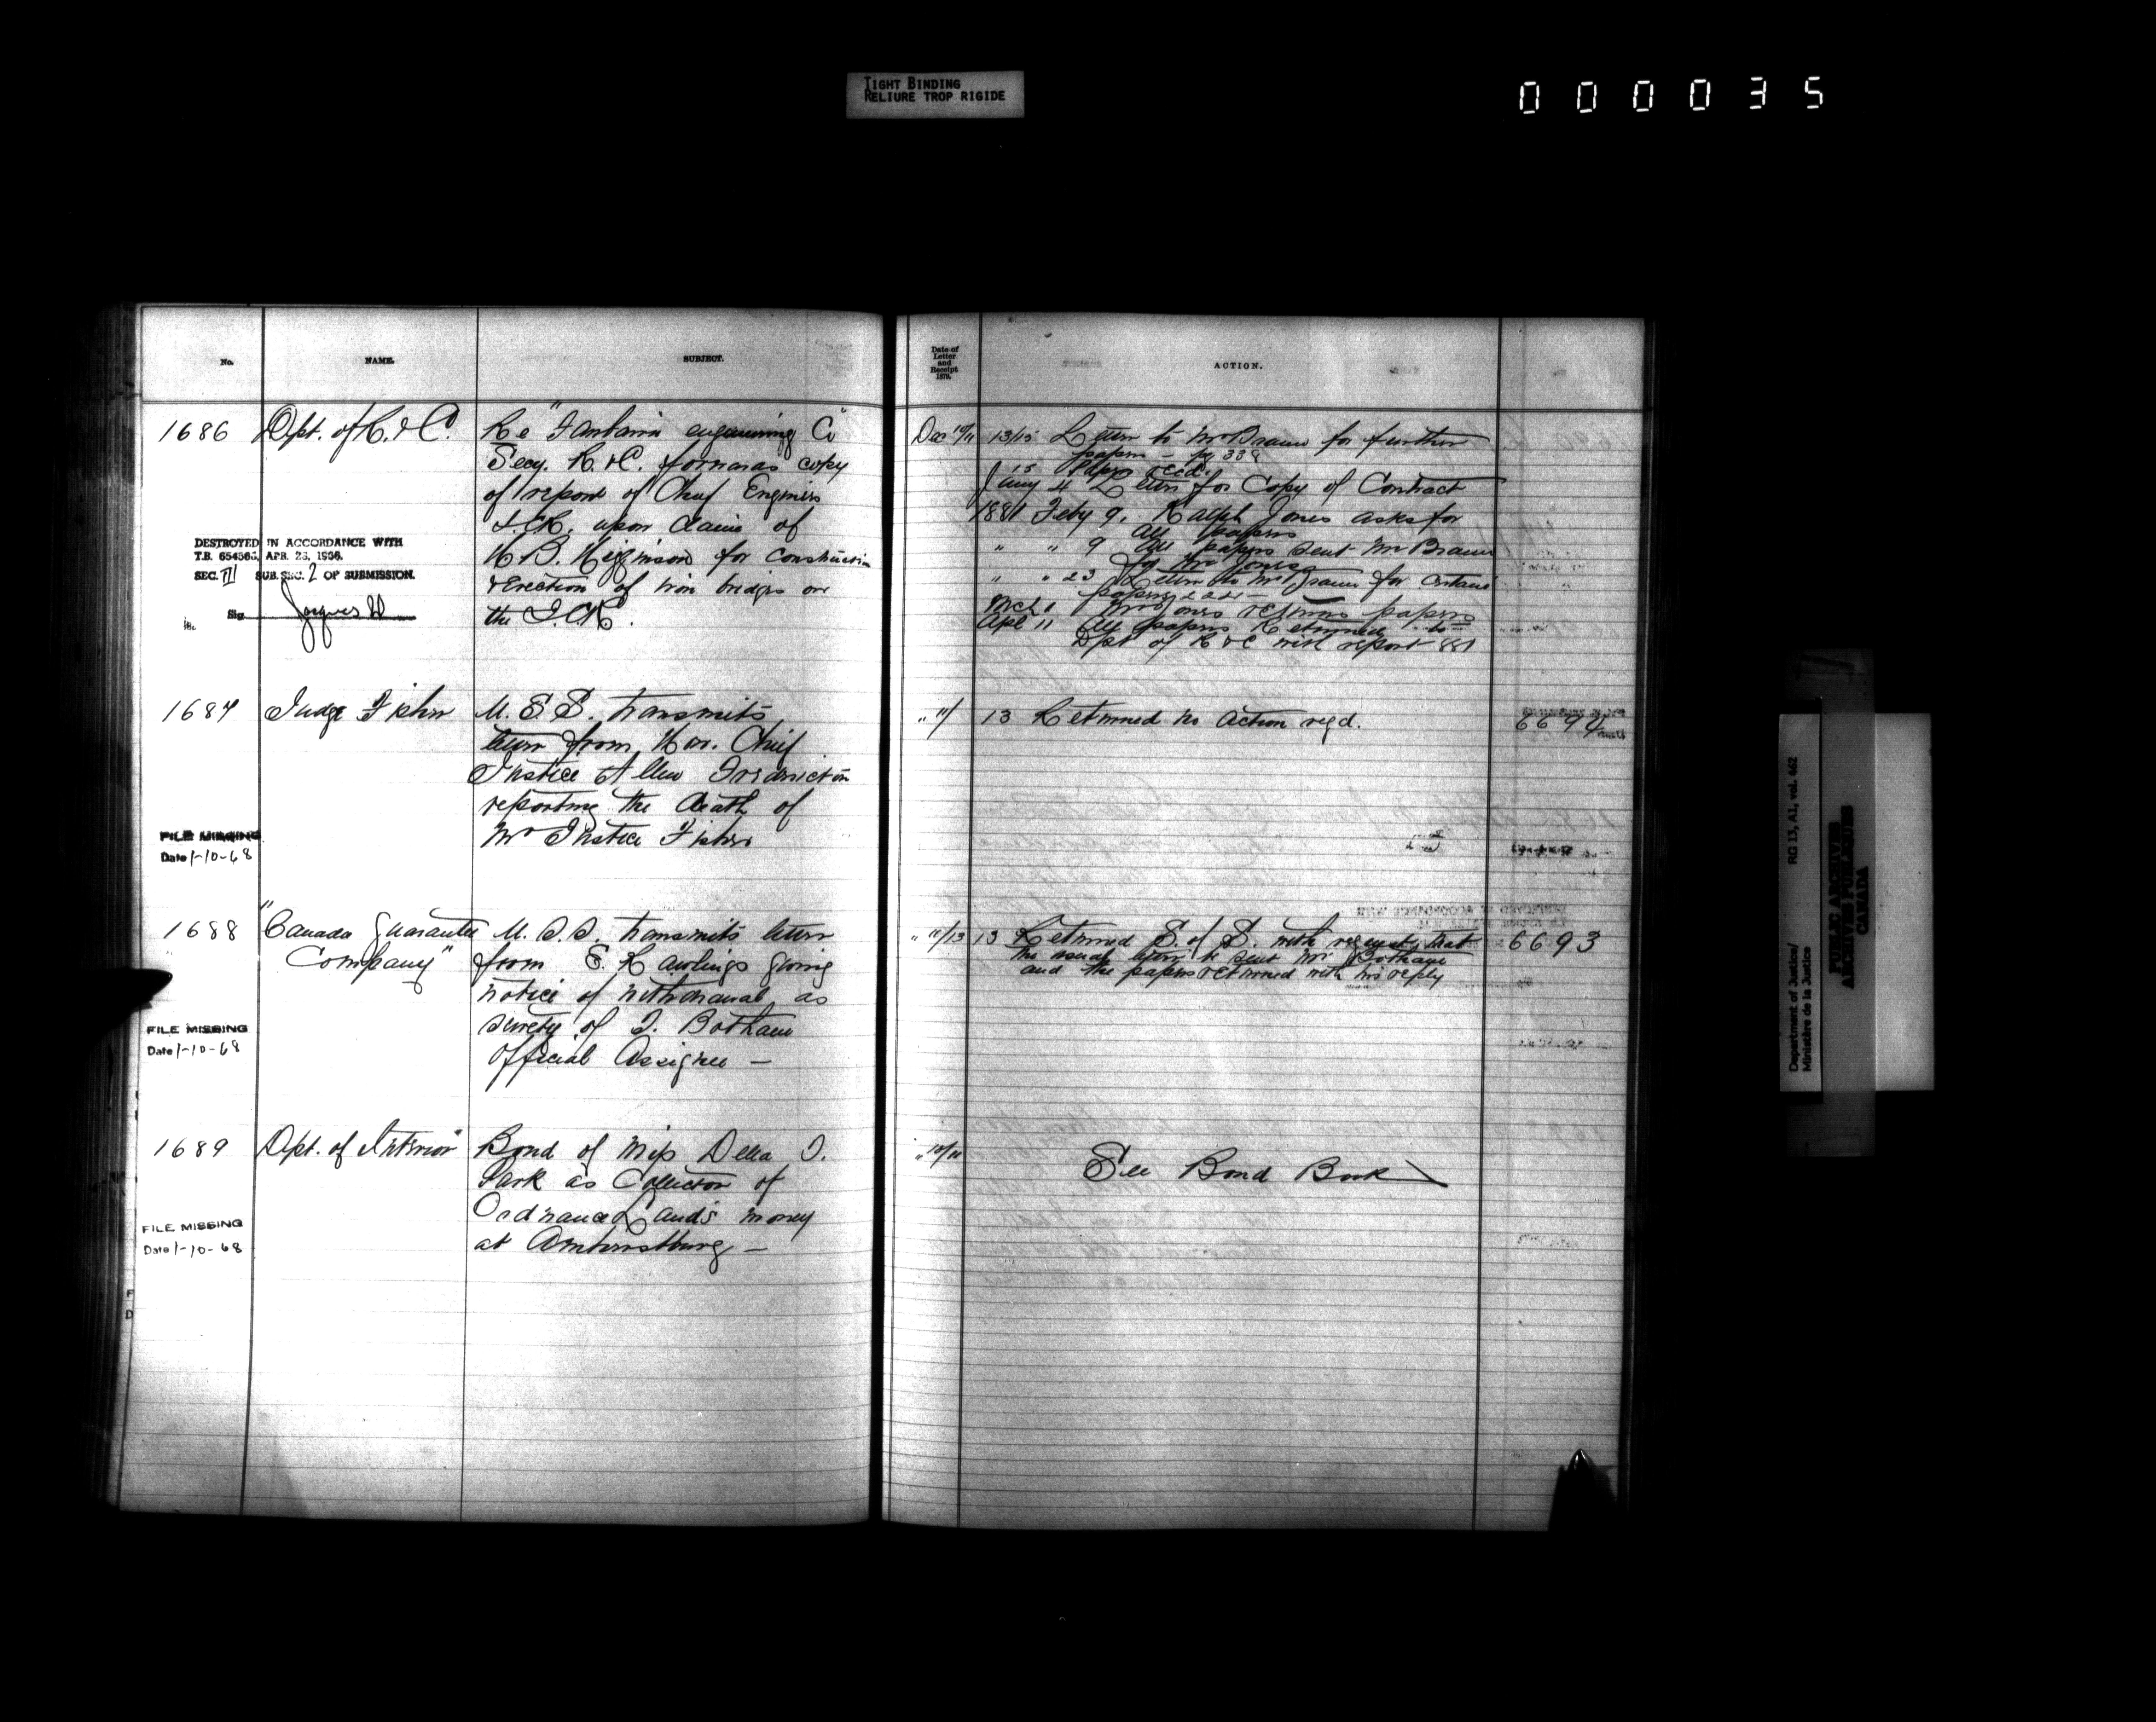 TIGHT BINDING
RELIURE TROP RIGIDE
000035
No.
NAME.
SUBJECT.
1686 Dpt. of R. & C.
Re "Fairbairn engineering Co"
Secy. R. & C. forwards copy
of report of Chief Engineer
I.C.R. upon claim of
H B. Higginson for construction
& Erection of iron bridges on
the I.C.R.
DESTROYED IN ACCORDANCE WITH
T.B. 654566, APR. 23, 1966.
SEC. III SUB. SEC. 2 OF SUBMISSION.
Sig
1687 Judge Fisher
U. S. S. transmits
letter from Hon. Chief
Justice Allen Fredericton
reporting the death of
Mr Justice Fisher
FILE MISSING
Date 1-10-68
1688 "Canada Guarantee
Company"
U. S. S. transmits letter
from E. Rawlings giving
notice of withdrawal as
surety of J. Botham
Official Assignee —
FILE MISSING
Date 1-10-68
1689 Dpt. of Interior
Bond of Miss Delia J.
Park as Collector of
Ordnance Lands money
at Amherstburg —
FILE MISSING
Date 1-10-68
Date of
Letter
and
Receipt
1879.
ACTION.
Dec 10/11 13/15 Letter to Mr Braun for further
papers — pg 338
15 Papers recd.
Jany 4 Letter for Copy of Contract
1881 Feby 9. Ralph Jones asks for
all papers
" " 9 All papers sent Mr Braun
for Mr Jones
" " 23 Letter to Mr Braun for certain
papers
Mch 1 Mr Jones returns papers
Apl 11 All papers Returned to
Dpt of R & C with report 881
" 11/ 13 Returned no action reqd. 6694
" 11/13 13 Returned S. of S. with request that
the usual letter be sent Mr Botham
and the papers returned with his reply
6693
" 10/11 See Bond Book
Department of Justice/
Ministère de la Justice
RG 13, A1, vol. 462
PUBLIC ARCHIVES
ARCHIVES PUBLIQUES
CANADA